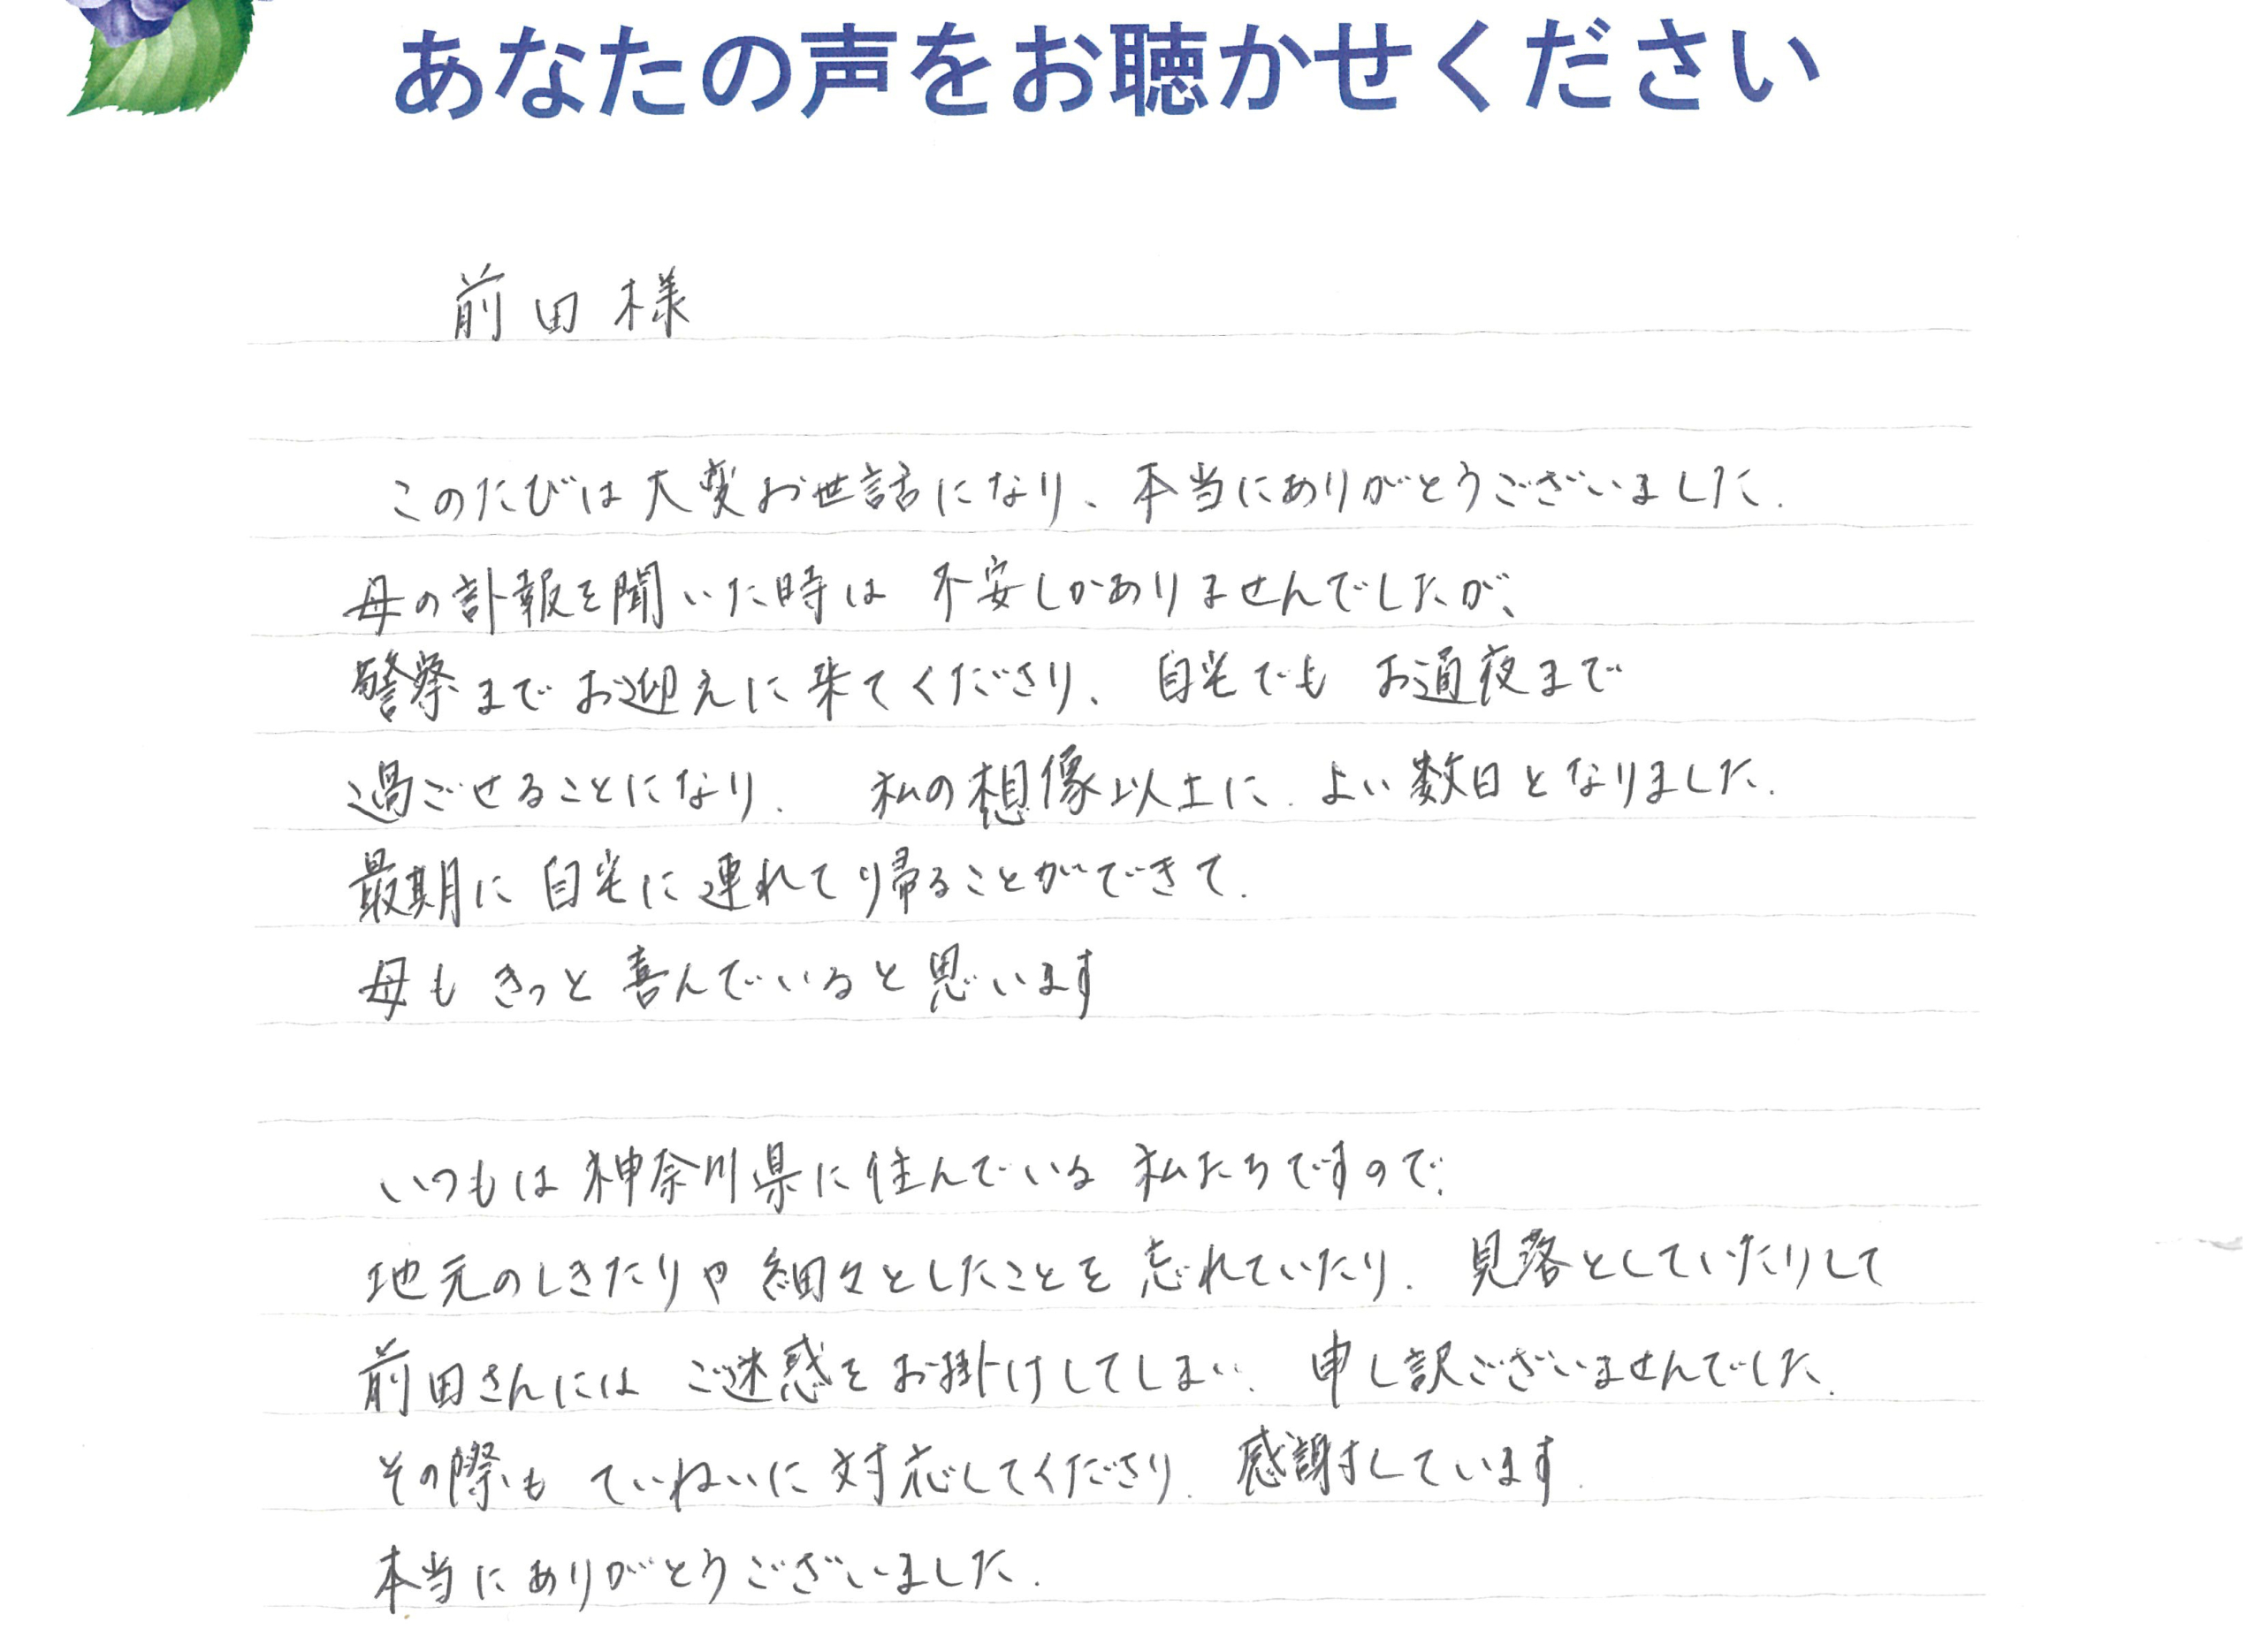 あなたの声をお聴かせください
前田様
このたびは大変お世話になり、本当にありがとうございました.
母の訃報を聞いた時は 不安しかありませんでしたが、
警察までお迎えに来てくださり、自宅でも お通夜まで
過ごせることになり. 私の想像以上に. よい数日となりました.
最期に自宅に連れて帰ることができて.
母も きっと喜んでいると思います
いつもは神奈川県に住んでいる 私たちですので.
地元のしきたりや細々としたことを忘れていたり. 見落としていたりして
前田さんには ご迷惑をお掛けしてしまい. 申し訳ございませんでした.
その際も ていねいに対応してくださり. 感謝しています.
本当にありがとうございました.